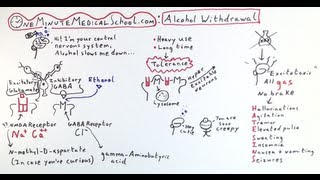 OneMinuteMedicalSchool.com: Alcohol Withdrawal
Hi! I'm your central
nervous system,
Alcohol slows me down...
• Heavy use
• Long time
Tolerance
Excitatory
Glutamate
Inhibitory
GABA
Ethanol
M
M
Lysosome
Hyper
Excitable
Neurons
Excitatosis
All gas
No brake
NMDA Receptor
Na+ Ca2+
GABA Receptor
Cl-
N-methyl-D-aspartate
(In case you're curious)
gamma-Aminobutyric
acid
You are
Soor
creepy
Hallucinations
Agitation
Tremor
Elevated pulse
Sweating
Insomnia
Nausea & vomiting
Seizures